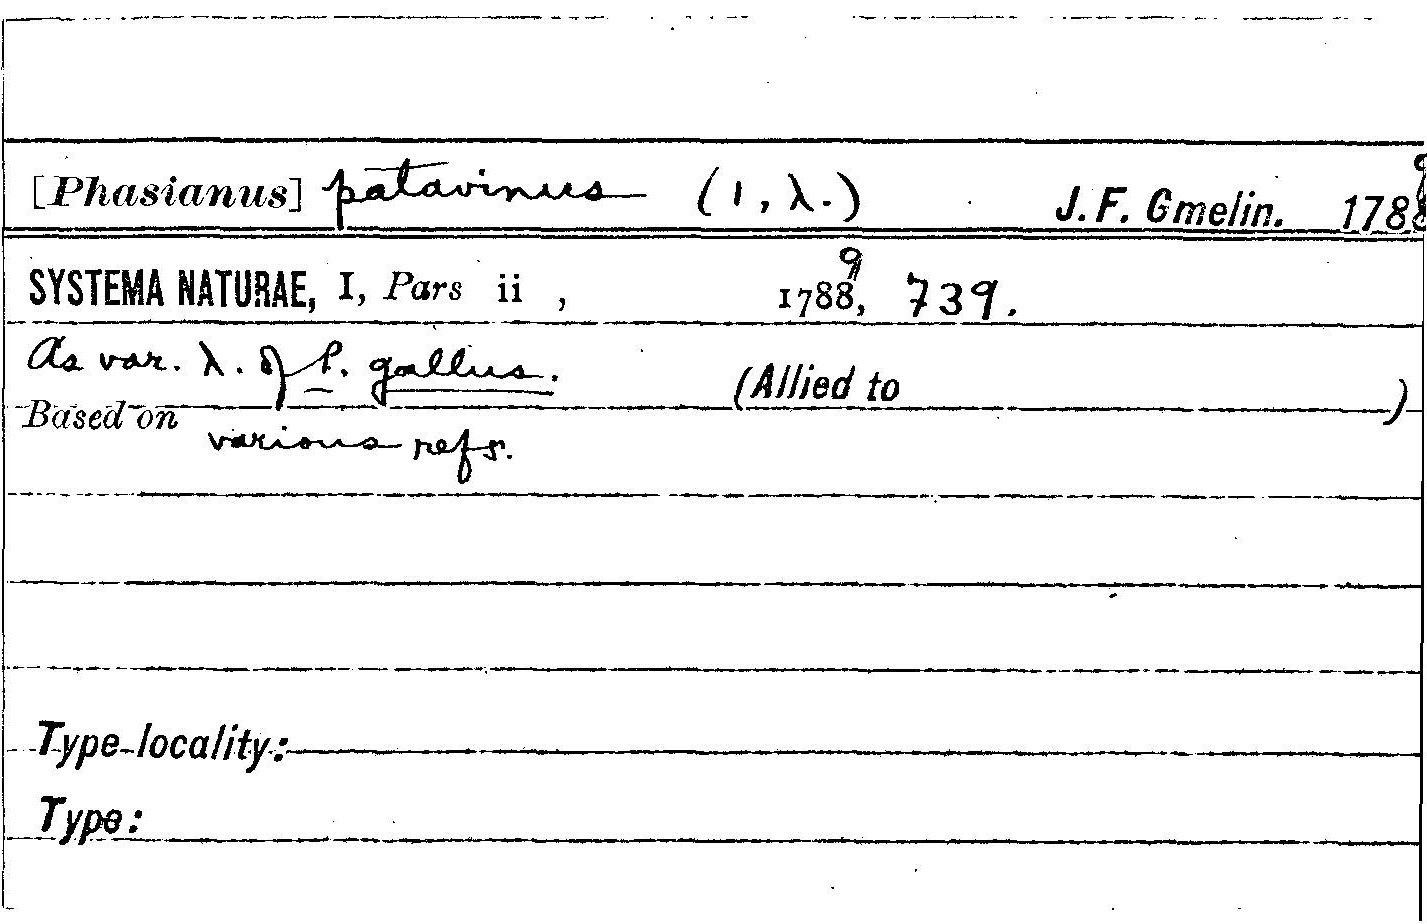 [Phasianus] patavinus (1, λ.) J. F. Gmelin. 1789
SYSTEMA NATURAE, I, Pars ii, 1789, 739.
As var. λ. of P. gallus. (Allied to )
Based on various refs.
Type-locality:
Type: